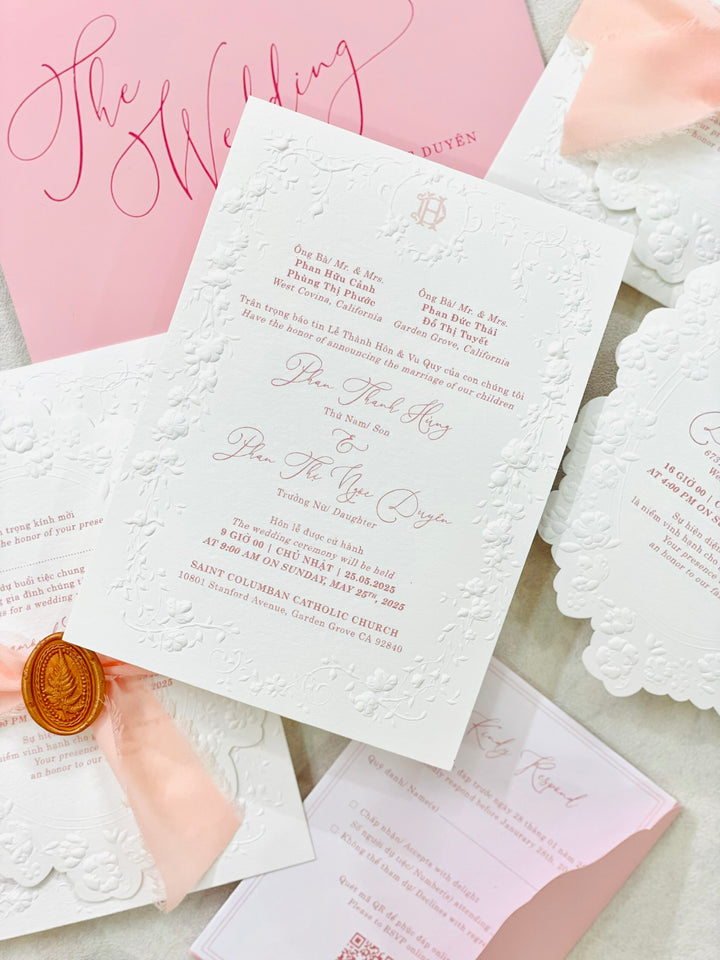 The Wedding
DUYÊN
DH
Ông Bà/ Mr. & Mrs.
Phan Hữu Cảnh
Phùng Thị Phước
West Covina, California
Ông Bà/ Mr. & Mrs.
Phan Đức Thái
Đỗ Thị Tuyết
Garden Grove, California
Trân trọng báo tin Lễ Thành Hôn & Vu Quy của con chúng tôi
Have the honor of announcing the marriage of our children
Phan Thanh Hùng
Thứ Nam/ Son
&
Phan Thị Ngọc Duyên
Trưởng Nữ/ Daughter
Hôn lễ được cử hành
The wedding ceremony will be held
9 GIỜ 00 | CHỦ NHẬT | 25.05.2025
AT 9:00 AM ON SUNDAY, MAY 25TH, 2025
SAINT COLUMBAN CATHOLIC CHURCH
10801 Stanford Avenue, Garden Grove CA 92840
trọng kính mời
the honor of your presence
dự buổi tiệc chung
gia đình chúng tôi
us for a wedding
PM
niềm vinh hạnh cho
Your presence
an honor to our
16 GIỜ 00 |
AT 4:00 PM ON
Sự hiện diện
là niềm vinh hạnh cho
Your presence
an honor to our
Kindly Respond
đáp trước ngày 28 tháng 01 năm
respond before Januarary 28th,
Quý danh/ Name(s)
Chấp nhận/ Accepts with delight
Số người dự tiệc/ Number(s) attending
Không thể tham dự/ Declines with
Quét mã QR để phúc đáp
Please to RSVP online